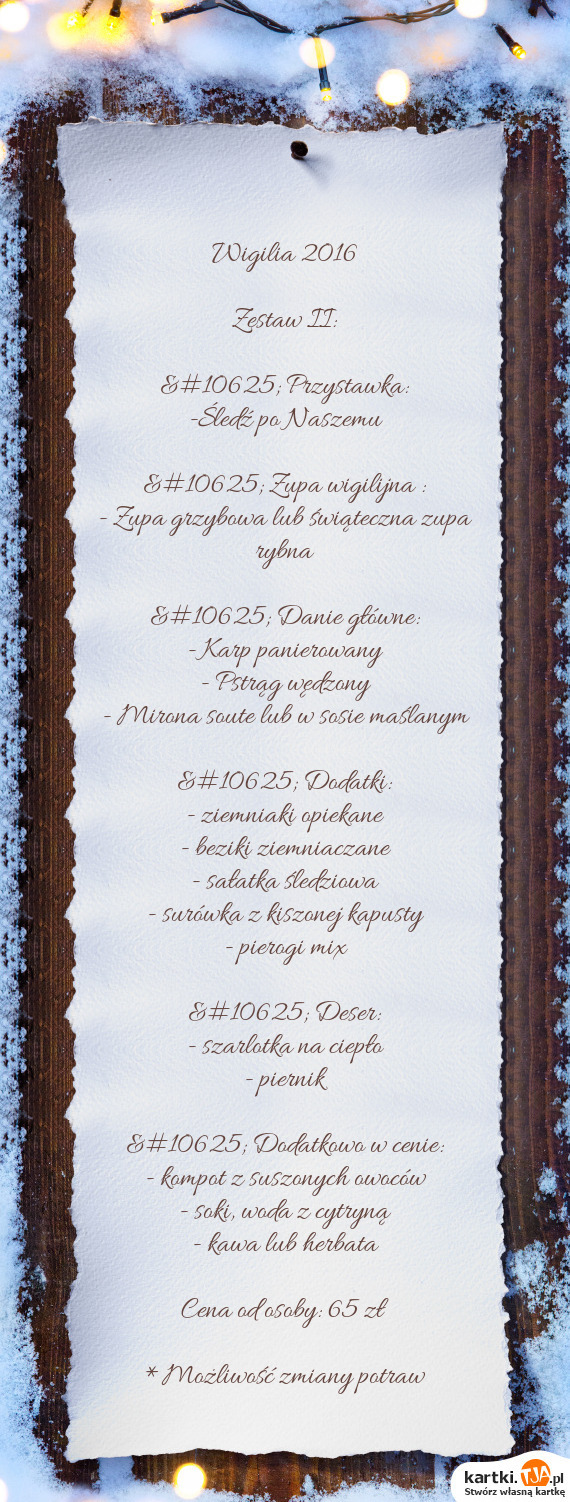 Wigilia 2016
Zestaw II:
&#10625; Przystawka:
-Śledź po Naszemu
&#10625; Zupa wigilijna :
- Zupa grzybowa lub świąteczna zupa
rybna
&#10625; Danie główne:
- Karp panierowany
- Pstrąg wędzony
- Mirona soute lub w sosie maślanym
&#10625; Dodatki:
- ziemniaki opiekane
- beziki ziemniaczane
- sałatka śledziowa
- surówka z kiszonej kapusty
- pierogi mix
&#10625; Deser:
- szarlotka na ciepło
- piernik
&#10625; Dodatkowo w cenie:
- kompot z suszonych owoców
- soki, woda z cytryną
- kawa lub herbata
Cena od osoby: 65 zł
* Możliwość zmiany potraw
kartki.TJA.pl
Stwórz własną kartkę